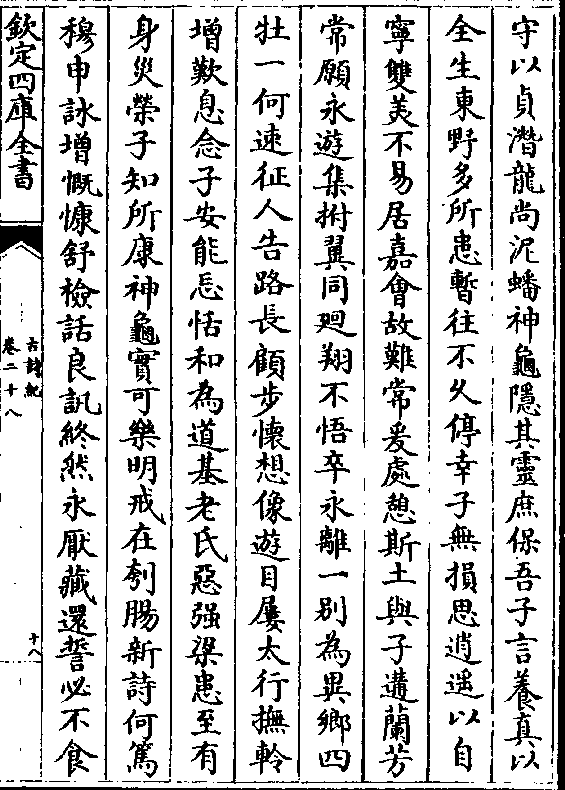 守以貞潛龍尚泥蟠神龜隱其靈庶保吾子言養真以
全生東野多所患暫往不久停幸子無損思逍遥以自
寧雙美不易居嘉會故難常爰處憩斯土與子遘蘭芳
常願永遊集拊翼同廻翔不悟卒永離一别為異鄉四
牡一何速征人告路長顧步懷想像遊目屢太行撫軨
增歎息念子安能忘恬和為道基老氏惡强梁患至有
身災榮子知所康神龜實可樂明戒在刳腸新詩何篤
穆申詠增慨慷舒檢話良訊終然永厭藏還誓必不食
欽定四庫全書
古詩紀
卷二十八
十八